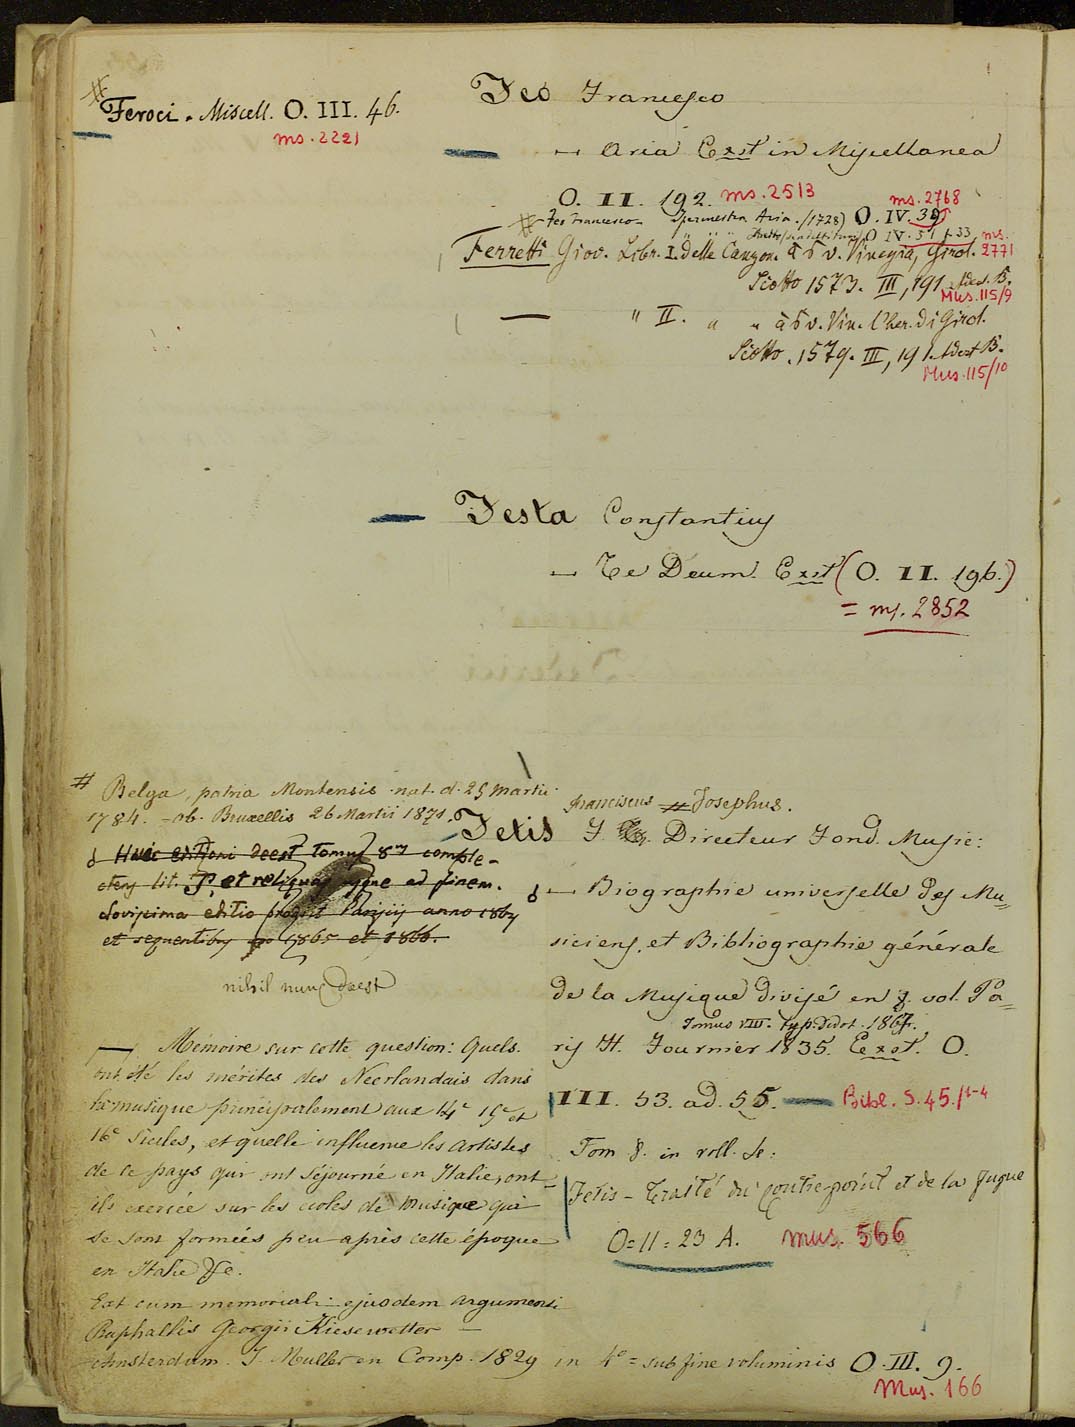 # Feroci. Miscell. O. III. 46.
ms. 2221
Feo Francesco
— Aria Exst in Miscellanea
O. II. 192. ms. 2513
ms. 2768
# — Feo Francesco — Ipermestra Aria. (1728) O. IV. 39
O IV. 51 f. 33 ms. 2771
Ferretti Giov. Libr. I. delle Canzon. à 5 v. Vinegia, Girol.
Scotto 1573. III, 191. Adest B.
Mus. 115/9
— " II. " " à 5 v. Vin. l'her. di Girol.
Scotto. 1579. III, 191. Adest B.
Mus. 115/10
— Festa Constantius
— Te Deum. Exst (O. II. 196.)
= ms. 2852
# Belga, patria Montensis nat. d. 25 Martii
1784. — ob. Bruxellis 26 Martii 1871.
Huic editioni deest tomus 8us comple-
ctens lit. P, et reliquas usque ad finem.
Novissima editio prodiit Parisiis anno 1864
et sequentibus 1865 et 1866.
nihil nunc deest
Franciscus # Josephus.
Fetis F. Directeur Fond. Music:
— Biographie universelle des Mu=
siciens, et Bibliographie générale
de la Musique divisé en 8. vol. Pa=
Tomus VIII. typ. Didot. 1867.
ris H. Fournier 1835. Exst. O.
III. 53. ad. 55. — Bibl. S. 45/1-4
Tom 8. in voll. 4:
Fetis — Traité du contrepoint et de la fugue
O = II = 23 A. mus. 566
— Mémoire sur cette question: Quels
ont été les mérites des Neerlandais dans
la musique principalement aux 14e 15e et
16e Siecles, et quelle influence les artistes
de ce pays qui ont séjourné en Italie, ont-
ils exercée sur les écoles de musique qui
se sont formées peu après cette époque
en Italie &c.
Est cum memoriali ejusdem argumenti
Raphaelis Georgii Kiesewetter —
Amsterdam. J. Muller en Comp. 1829 in 4o = sub fine voluminis O. III. 9.
Mus. 166